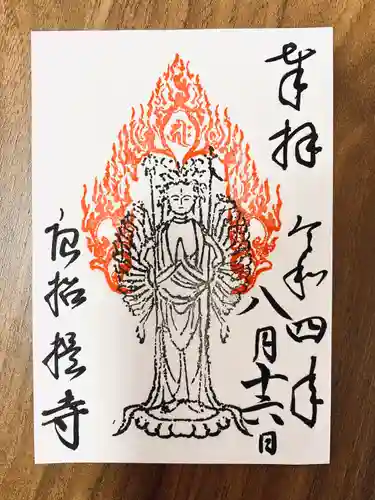 奉拝
令和四年
八月十六日
唐招提寺